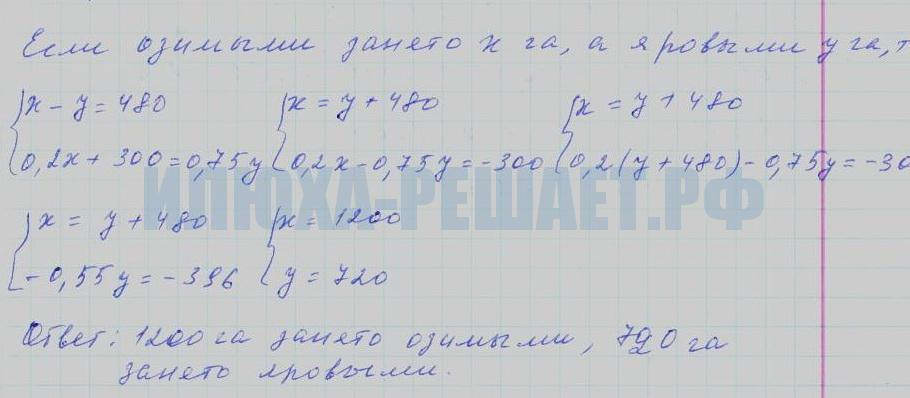 Если озимыми занято x га, а яровыми y га, т
{x - y = 480 {x = y + 480 {x = y + 480
{0,2x + 300 = 0,75y {0,2x - 0,75y = -300 {0,2(y + 480) - 0,75y = -30
ИЛЮХА-РЕШАЕТ.РФ
{x = y + 480 {x = 1200
{-0,55y = -396 {y = 720
Ответ: 1200 га занято озимыми, 720 га
занято яровыми.